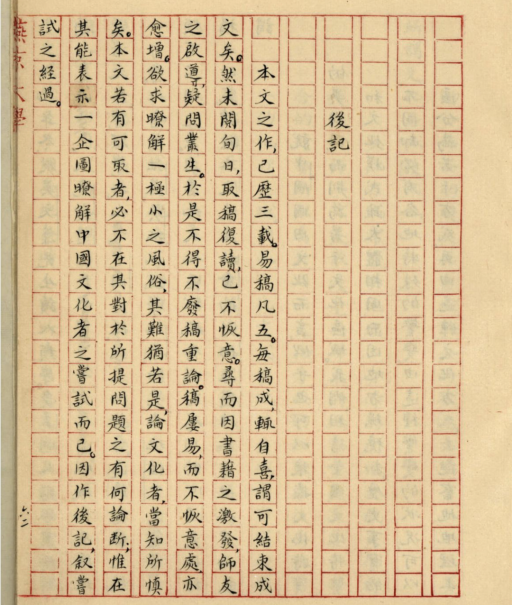 後記
本文之作,已歷三載。易稿凡五。每稿成,輒自喜,謂可結束成
文矣。然未閱旬日,取稿復讀,已不恢意。尋而因書籍之激發,師友
之啟導,疑問叢生。於是不得不廢稿重論。稿屢易,而不恢意處亦
愈增。欲求瞭解一極小之風俗,其難猶若是,論文化者,當知所慎
矣。本文若有可取者,必不在其對於所提問題之有何論斷,惟在
其能表示一企圖瞭解中國文化者之嘗試而已。因作後記,叙嘗
試之經過。
燕京大學
六二